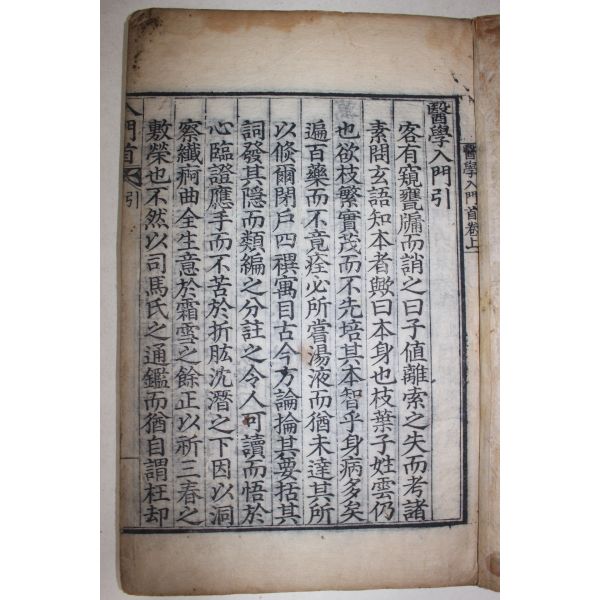 醫學入門首卷上
醫學入門引
客有窺甕牖而誚之曰子值離索之失而考諸
素問玄語知本者歟曰本身也枝葉子姓雲仍
也欲枝繁實茂而不先培其本智乎身病多矣
遍百藥而不竟痊必所嘗湯液而猶未達其所
以倏爾閉戶四禩寓目古今方論掄其要括其
詞發其隱而類編之分註之令人可讀而悟於
心臨證應手而不苦於折肱沈潛之下因以洞
察纖疴曲全生意於霜雪之餘正以祈三春之
敷榮也不然以司馬氏之通鑑而猶自謂枉却
入門首 引